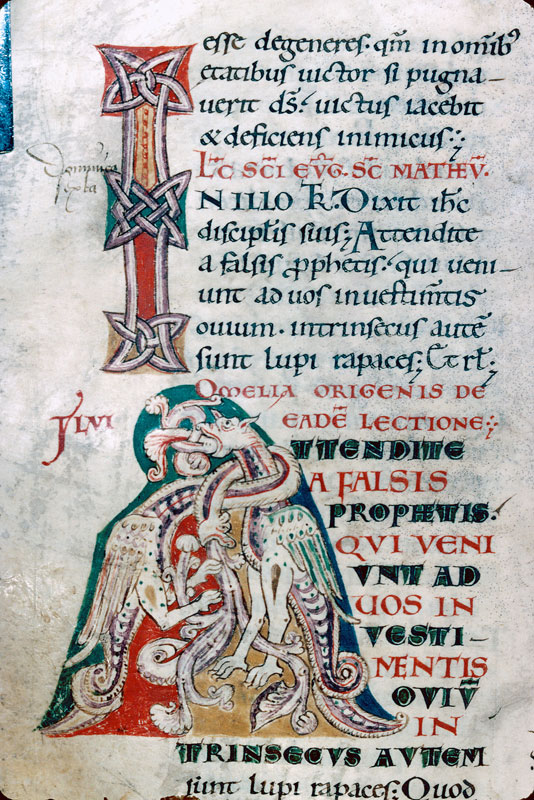 esse degeneres. qm̄ in omib᷒
etatibus uictor si pugna-
uerit ds̄. uictus iacebit
& deficiens inimicus:
Lc̄ sc̄i eūg. sc̄ Matheū.
IN ILLO TR̄. Dixit ih̄c
discipl̄is suis; Attendite
a falsis ꝓphetis. qui ueni-
unt ad uos in uestim̄tis
ouium. intrinsecus autē
sunt lupi rapaces; Et rl̄;
OMELIA ORIGENIS DE
EADĒ LECTIONE;
ATTENDITE
A FALSIS
PROPHETIS.
QUI VENI
VNT AD
UOS IN
VESTI-
MENTIS
OVIŪ
IN
TRINSECVS AVTEM
sunt lupi rapaces; Quod
Dominica
sexta